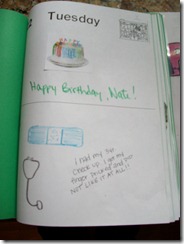 Tuesday
Happy Birthday, Nate!
I had my
check up. I got my
finger pricked and did
NOT LIKE IT AT ALL!!